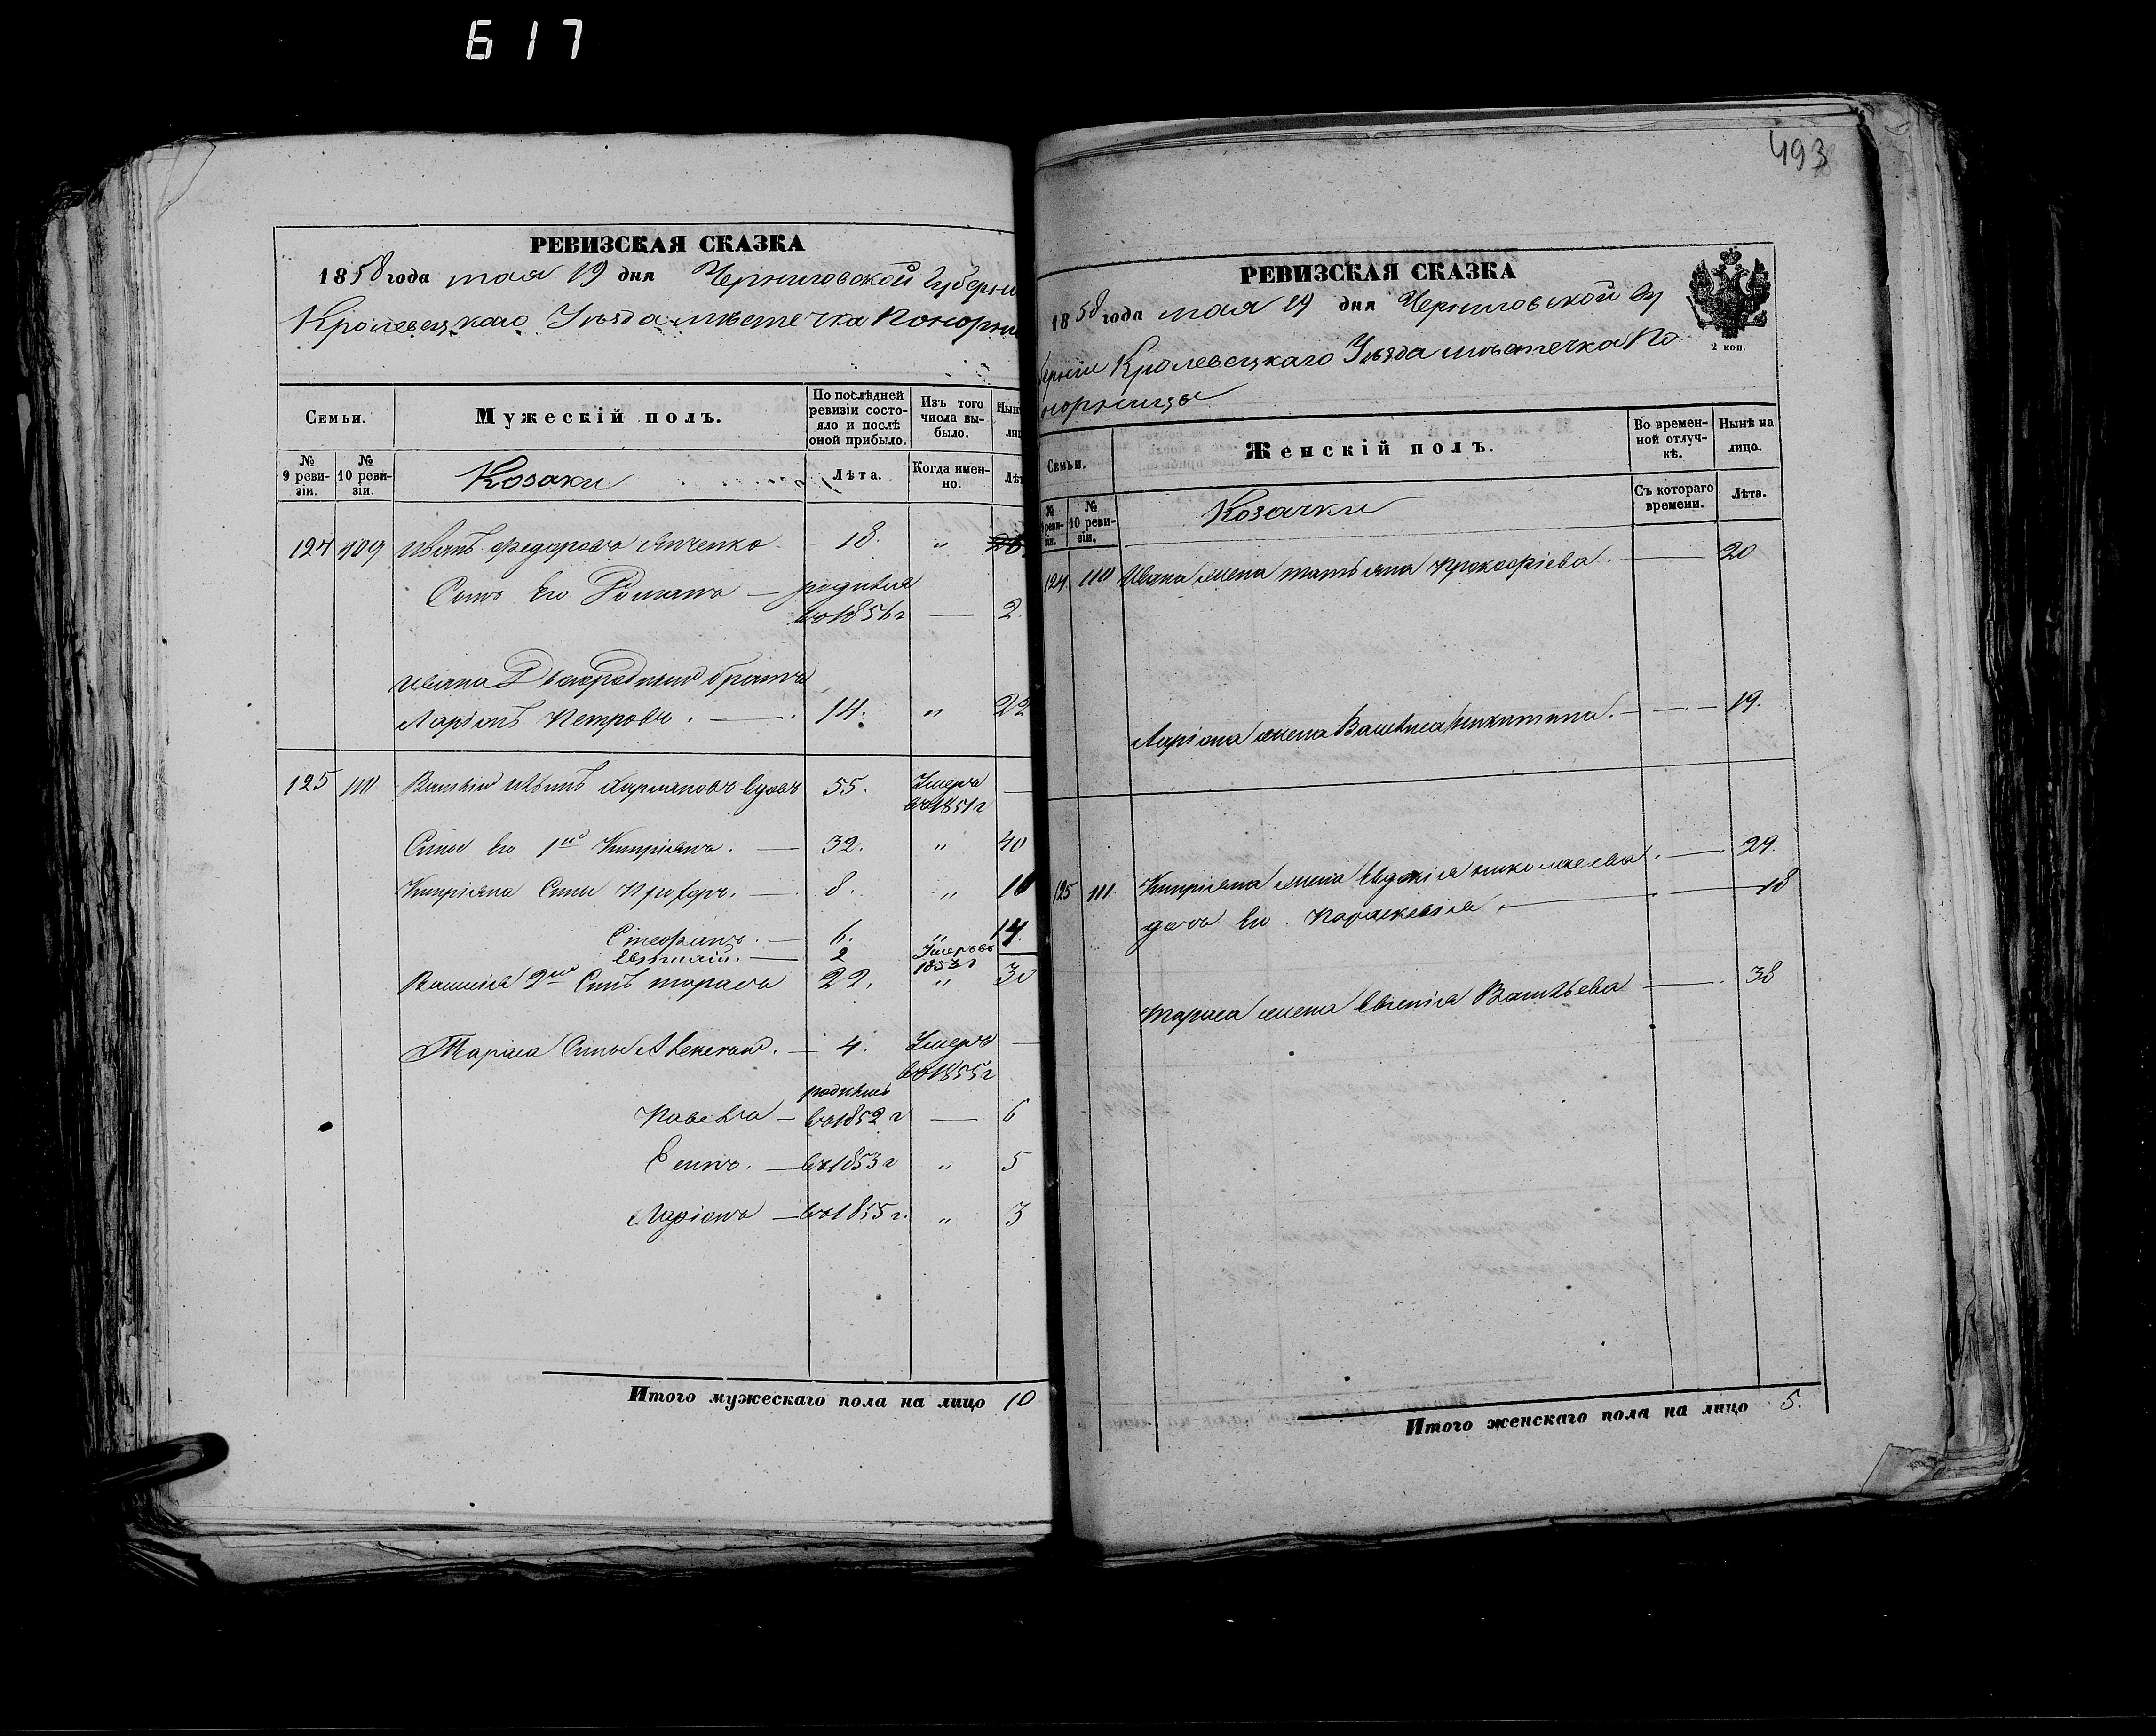 617
РЕВИЗСКАЯ СКАЗКА
1858 года мая 19 дня Черниговской Губерн
Кролевецкаго Уезда местечка Понорн
Семьи.
Мужескій полъ.
По послѣдней ревизіи состояло и послѣ оной прибыло.
Изъ того числа выбыло.
Нын
лиц
№ 9 ревизіи.
№ 10 ревизіи.
Козаки
Лѣта.
Когда именно.
Лѣт
124 109 Иванъ Федоровъ 18. "
Сынъ его Романъ — родился
въ 1856 г — 2
Ивана Двоюродный братъ
Ларіонъ Петровъ. — 14. " 22
125 Василій 55. Умеръ
въ 1851 г —
Сынъ его 1й Кипріянъ. — 32. " 40
Кипріяна Сыны — 8. "
Стефанъ. — 6. " 14.
2 Умеръ въ
1853 г —
Василія 2й Сынъ Тарасъ 22. " 30
Тараса Сыны Алексей. — 4. Умеръ —
въ 1855 г
родились
Павелъ — въ 1852 г — 6
— въ 1853 г " 5
Ларіонъ — въ 1855 г. " 3
Итого мужескаго пола на лицо 10
493
РЕВИЗСКАЯ СКАЗКА
1858 года мая 19 дня Черниговской Гу
берніи Кролевецкаго Уезда местечка По
норницы
2 коп.
Семьи.
Женскій полъ.
Во временной отлучкѣ.
Нынѣ на лицо.
№ реви-
зіи.
№ 10 ревизіи.
Козачки
Съ котораго времени.
Лѣта.
124. 110 Ивана жена Татьяна Прокофіева — 20
Ларіона жена Василиса Никитина. — 19.
125 111 Кипріяна жена Евдокія Николаева. — 29.
дочь его Параскевія — 18
Тараса жена Васильева — 38
Итого женскаго пола на лицо 5.